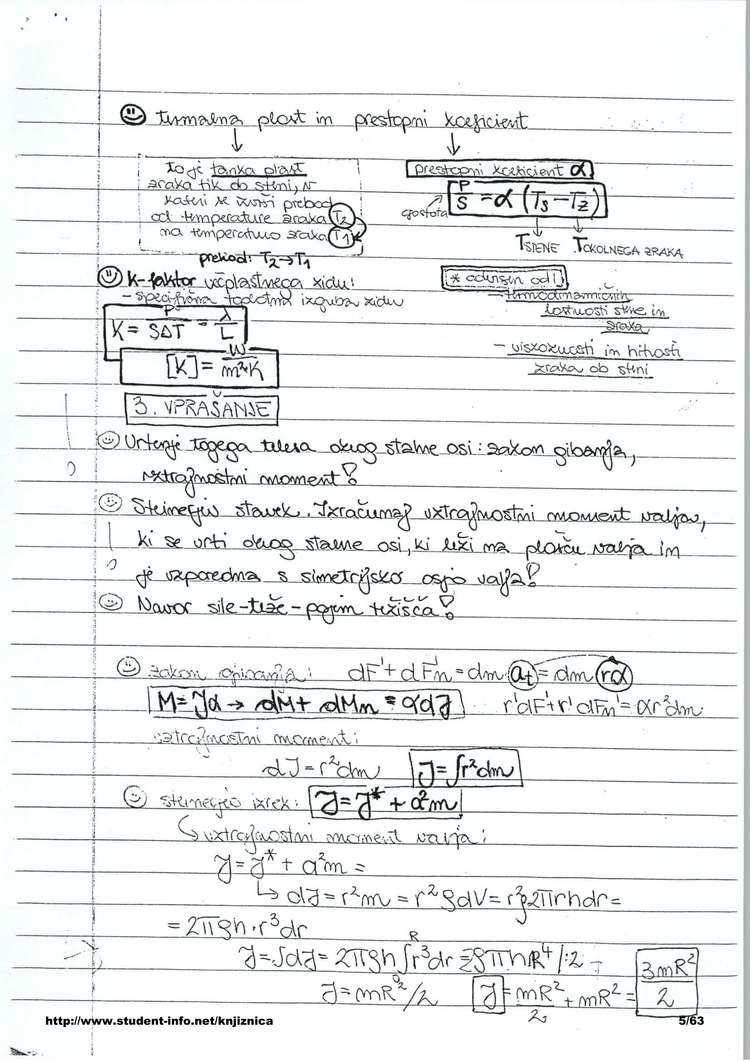 termalna plast in prestopni koeficient
to je tanka plast
zraka tik ob steni, v
kateri se izvrši prehod
od temperature zraka T2
na temperaturo zraka T1
prehod: T2→T1
prestopni koeficient α
gostota P/S = α (Ts-Tz)
TSTENE TOKOLNEGA ZRAKA
* odvisen od:
- termodinamičnih
lastnosti stene in
zraka
- viskoznosti in hitrosti
zraka ob steni
K-faktor večplastnega zidu:
- specifična toplotna izguba zidu
K = P/SΔT = λ/L
[K] = W/m²K
3. VPRAŠANJE
Vrtenje togega telesa okrog stalne osi: zakon gibanja,
vztrajnostni moment!
Steinerjev stavek. Izračunaj vztrajnostni moment valja,
ki se vrti okrog stalne osi, ki leži na plašču valja in
je vzporedna s simetrijsko osjo valja!
Navor sile-teže-pojem težišča!
zakon gibanja: dF'+dF'n = dm at = dm rα
M=Jα → dM+ dMn = αdJ r'dF'+r'dFn'=αr²dm
vztrajnostni moment:
dJ=r²dm J=∫r²dm
steinerjev izrek: J=J*+a²m
vztrajnostni moment valja:
J=J*+a²m=
↳ dJ=r²m = r²ρdV= r²ρ2πrhdr=
= 2πρh·r³dr
J=∫dJ= 2πρh ∫0R r³dr = ρπhR⁴/:2
J=mR²/2 J = mR²/2 + mR² = 3mR²/2
http://www.student-info.net/knjiznica 5/63